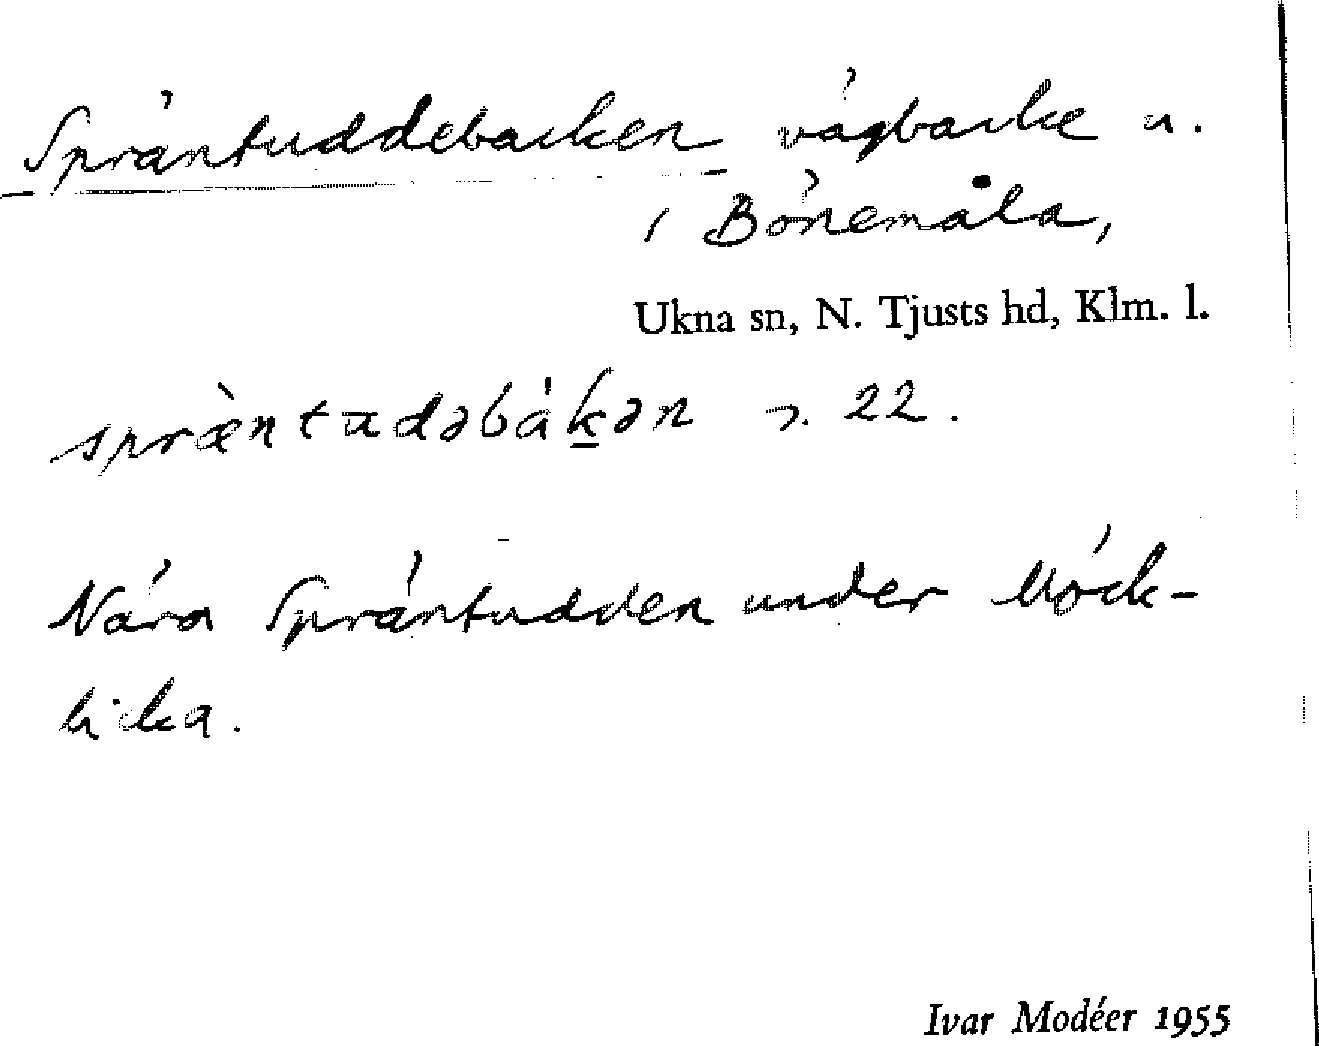 Spräntuddebacken vägbacke u.
i Bönemåla,
Ukna sn, N. Tjusts hd, Klm. l.
spræ̀ntudəbák̲ən 22.
Nära Spräntudden under Möck-
licka.
Ivar Modéer 1955